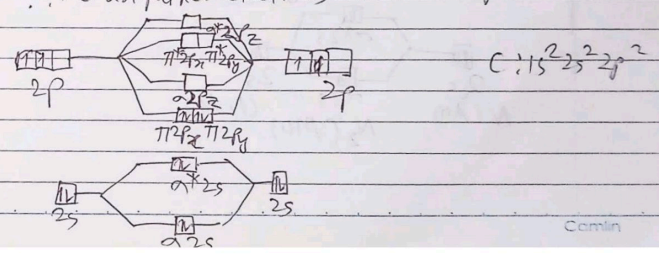 σ*2pz
π*2px π*2py
2p
2p
C : 1s² 2s² 2p²
σ2pz
π2px π2py
σ*2s
2s
2s
σ2s
Camlin